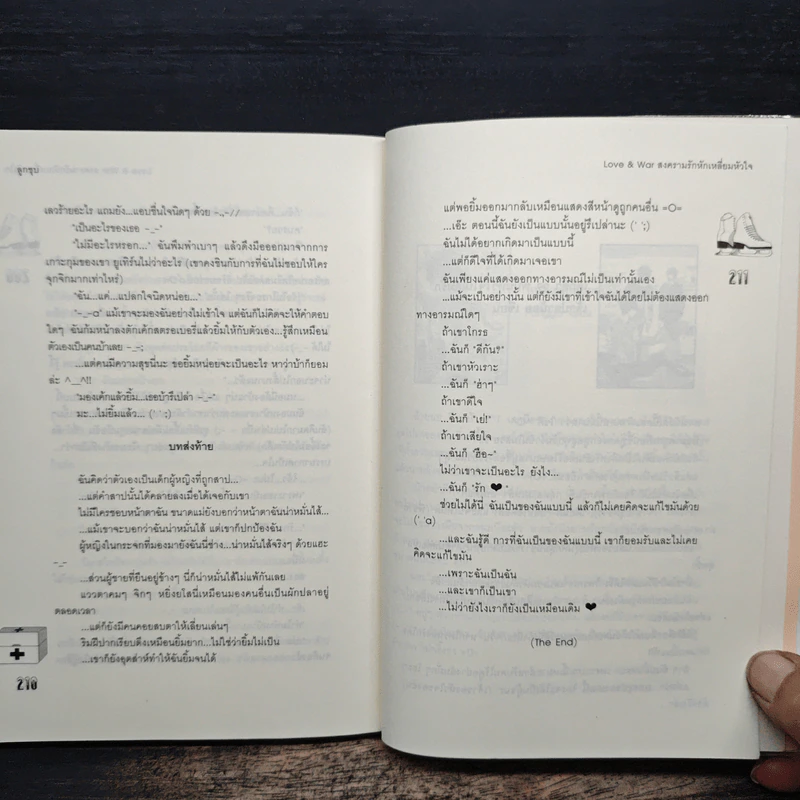 ลูกชุบ
เลวร้ายอะไร แถมยัง...แอบชื่นใจนิดๆ ด้วย -.,-//
"เป็นอะไรของเธอ -_-"
"ไม่มีอะไรหรอก..." ฉันพึมพำเบาๆ แล้วดึงมือออกมาจากการ
เกาะกุมของเขา ยูเทิร์นไม่ว่าอะไร (เขาคงชินกับการที่ฉันไม่ชอบให้ใคร
จุกจิกมากเท่าไหร่)
"ฉัน...แค่...แปลกใจนิดหน่อย..."
"-_-a" แม้เขาจะมองฉันอย่างไม่เข้าใจ แต่ฉันก็ไม่คิดจะให้คำตอบ
ใดๆ ฉันก้มหน้าลงตักเค้กสตรอเบอรี่แล้วยิ้มให้กับตัวเอง...รู้สึกเหมือน
ตัวเองเป็นคนบ้าเลย -_-;
...แต่คนมีความสุขนี่นะ ขอยิ้มหน่อยจะเป็นอะไร หาว่าบ้าก็ยอม
ล่ะ ^__^!!
"มองเค้กแล้วยิ้ม...เธอบ้ารึเปล่า -_-"
มะ...ไม่ยิ้มแล้ว... (' ';)
บทส่งท้าย
ฉันคิดว่าตัวเองเป็นเด็กผู้หญิงที่ถูกสาป...
...แต่คำสาปนั้นได้คลายลงเมื่อได้เจอกับเขา
ไม่มีใครชอบหน้าตาฉัน ขนาดแม่ยังบอกว่าหน้าตาฉันน่าหมั่นไส้...
...แม้เขาจะบอกว่าฉันน่าหมั่นไส้ แต่เขาก็ปกป้องฉัน
ผู้หญิงในกระจกที่มองมายังฉันนี่ช่าง...น่าหมั่นไส้จริงๆ ด้วยแฮะ
-_-
...ส่วนผู้ชายที่ยืนอยู่ข้างๆ นี่ก็น่าหมั่นไส้ไม่แพ้กันเลย
แววตาคมๆ จิกๆ หยิ่งยโสนี่เหมือนมองคนอื่นเป็นผักปลาอยู่
ตลอดเวลา
...แต่ก็ยังมีคนคอยสบตาให้เลี่ยนเล่นๆ
ริมฝีปากเรียบตึงเหมือนยิ้มยาก...ไม่ใช่ว่ายิ้มไม่เป็น
...เขาก็ยังอุตส่าห์ทำให้ฉันยิ้มจนได้
210
Love & War สงครามรักหักเหลี่ยมหัวใจ
แต่พอยิ้มออกมากลับเหมือนแสดงสีหน้าดูถูกคนอื่น =O=
...เอ๊ะ ตอนนี้ฉันยังเป็นแบบนั้นอยู่รึเปล่านะ (' ';)
ฉันไม่ได้อยากเกิดมาเป็นแบบนี้
...แต่ก็ดีใจที่ได้เกิดมาเจอเขา
ฉันเพียงแค่แสดงออกทางอารมณ์ไม่เป็นเท่านั้นเอง
...แม้จะเป็นอย่างนั้น แต่ก็ยังมีเขาที่เข้าใจฉันได้โดยไม่ต้องแสดงออก
ทางอารมณ์ใดๆ
ถ้าเขาโกรธ
...ฉันก็ "ตีกัน?"
ถ้าเขาหัวเราะ
...ฉันก็ "ฮ่าๆ"
ถ้าเขาดีใจ
...ฉันก็ "เย่!"
ถ้าเขาเสียใจ
...ฉันก็ "ฮือ~"
ไม่ว่าเขาจะเป็นอะไร ยังไง...
...ฉันก็ "รัก ❤ "
ช่วยไม่ได้นี่ ฉันเป็นของฉันแบบนี้ แล้วก็ไม่เคยคิดจะแก้ไขมันด้วย
(' 'a)
...และฉันรู้ดี การที่ฉันเป็นของฉันแบบนี้ เขาก็ยอมรับและไม่เคย
คิดจะแก้ไขมัน
...เพราะฉันเป็นฉัน
...และเขาก็เป็นเขา
...ไม่ว่ายังไงเราก็ยังเป็นเหมือนเดิม ❤
(The End)
211